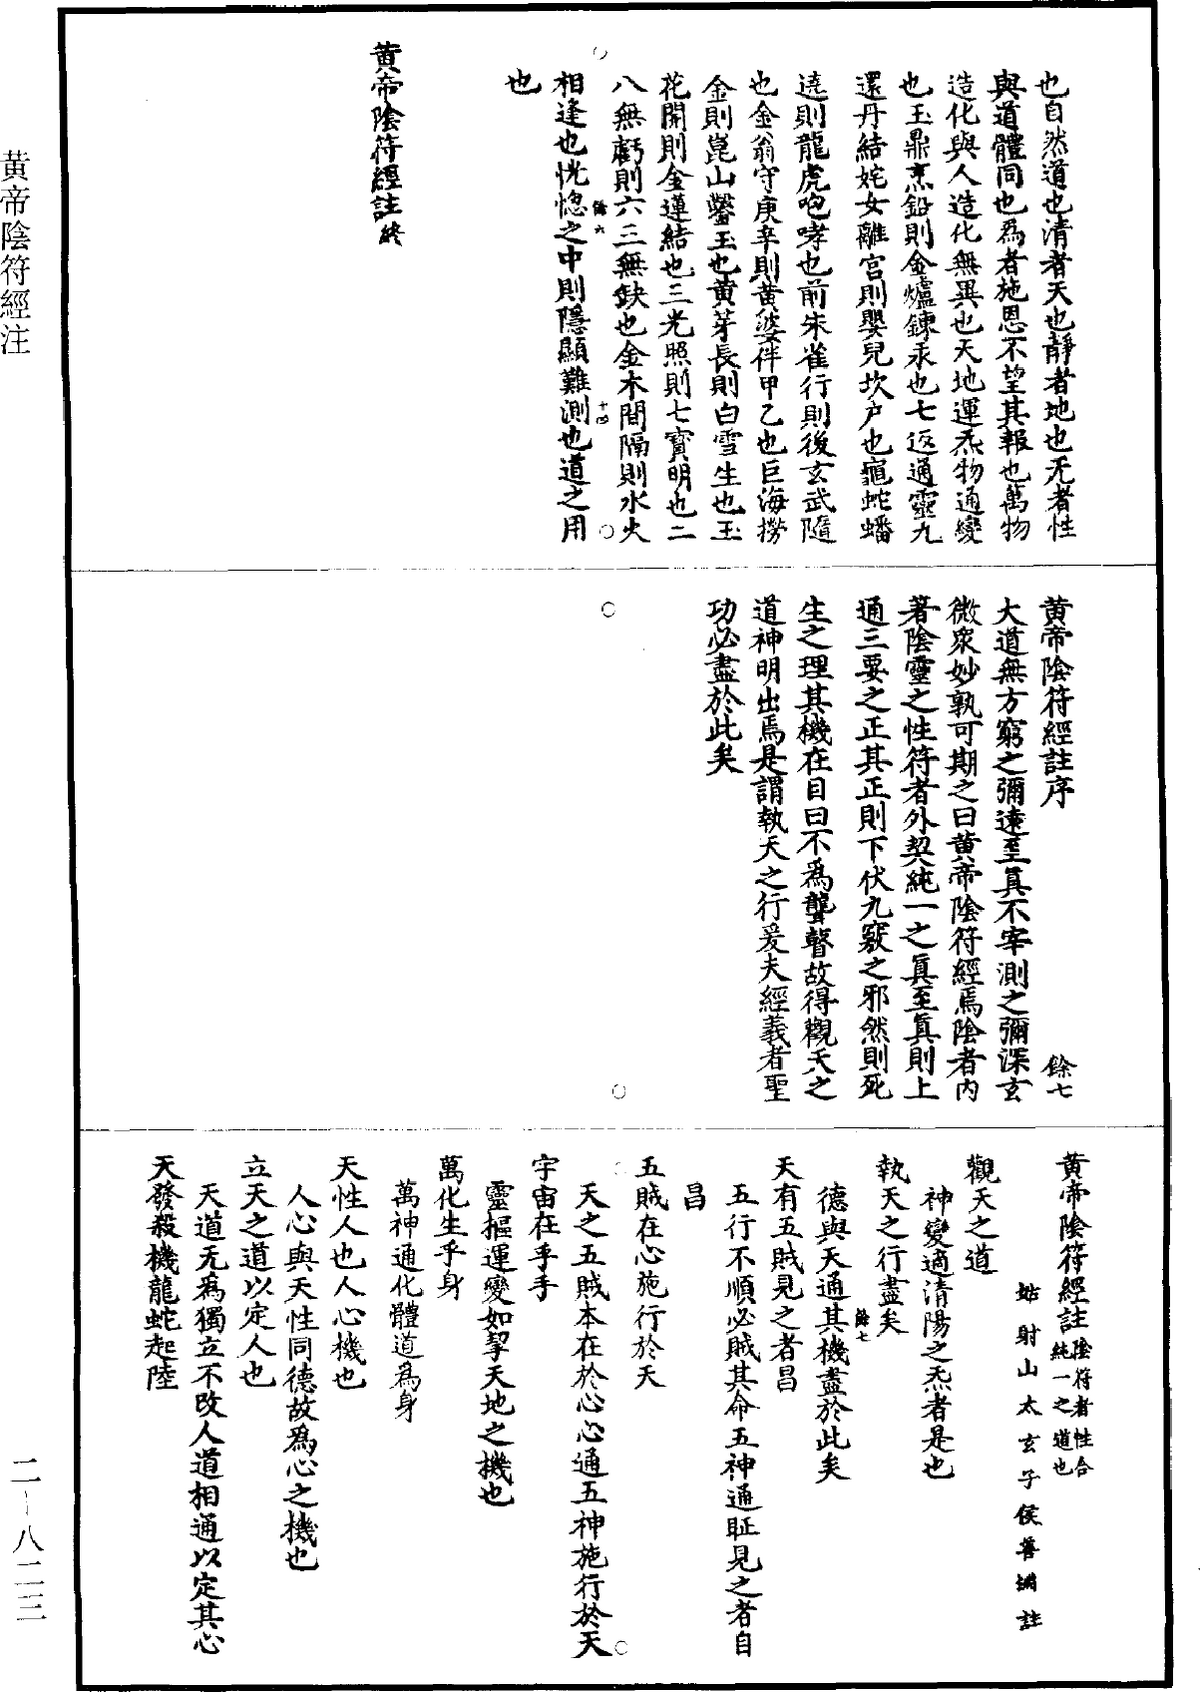 也自然道也清者天也靜者地也无者性
與道體同也為者施恩不望其報也萬物
造化與人造化無異也天地運炁物通變
也玉鼎烹鉛則金爐鍊汞也七返通靈九
還丹結姹女離宮則嬰兒坎户也龜蛇蟠
遶則龍虎咆哮也前朱雀行則後玄武隨
也金翁守庚辛則黄婆伴甲乙也巨海撈
金則崑山鑿玉也黄芽長則白雪生也玉
花開則金蓮結也三光照則七寶明也二
八無虧則六三無缺也金木間隔則水火
餘六
十四
相逢也恍惚之中則隱顯難測也道之用
也
黄帝陰符經註終
黄帝陰符經註序
餘七
大道無方窮之彌遠至真不宰測之彌深玄
微眾妙孰可期之曰黄帝陰符經焉陰者內
著陰靈之性符者外契純一之真至真則上
通三要之正其正則下伏九竅之邪然則死
生之理其機在目曰不為聾瞽故得觀天之
道神明出焉是謂執天之行爰夫經義者聖
功必盡於此矣
黄帝陰符經註
陰符者性合
純一之道也
姑射山太玄子侯善淵註
觀天之道
神變適清陽之炁者是也
執天之行盡矣
德與天通其機盡於此矣
餘七
天有五賊見之者昌
五行不順必賊其命五神通証見之者自
昌
五賊在心施行於天
天之五賊本在於心心通五神施行於天
宇宙在乎手
靈摳運變如挈天地之機也
萬化生乎身
萬神通化體道為身
天性人也人心機也
人心與天性同德故為心之機也
立天之道以定人也
天道无為獨立不改人道相通以定其心
天發殺機龍蛇起陸
黄帝陰符經注
二–八二三